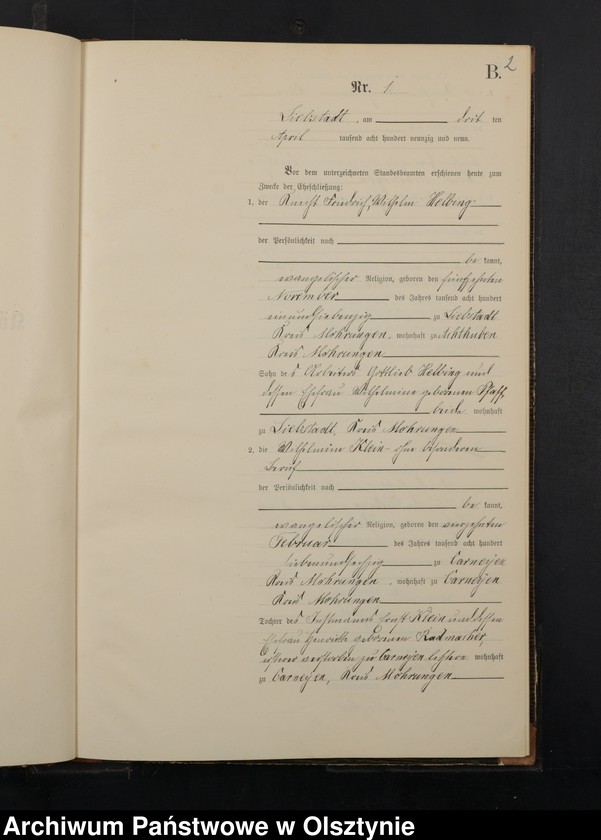 B. 2
Nr. 1
Liebstadt, am drit ten
April tausend acht hundert neunzig und neun.
Vor dem unterzeichneten Standesbeamten erschienen heute zum
Zwecke der Eheschließung:
1. der Knecht Friedrich, Wilhelm Helbing
der Persönlichkeit nach
be kannt,
evangelischer Religion, geboren den fünfzehnten
November des Jahres tausend acht hundert
einundsiebenzig zu Liebstadt
Kreis Mohrungen, wohnhaft zu Achthuben
Kreis Mohrungen
Sohn des Arbeiters Gottlieb Helbing und
dessen Ehefrau Wilhelmine geborenen Pfaff,
beide wohnhaft
zu Liebstadt, Kreis Mohrungen
2. die Wilhelmine Klein ohne besonderen
Beruf
der Persönlichkeit nach
be kannt,
evangelischer Religion, geboren den vierzehnten
Februar des Jahres tausend acht hundert
siebenundsechzig zu Carneyen
Kreis Mohrungen, wohnhaft zu Carneyen
Kreis Mohrungen
Tochter des Instmanns Ernst Klein und dessen
Ehefrau Henriette geborenen Radmacher,
ersterer verstorben zu Carneyen letztere wohnhaft
zu Carneyen, Kreis Mohrungen
Archiwum Państwowe w Olsztynie